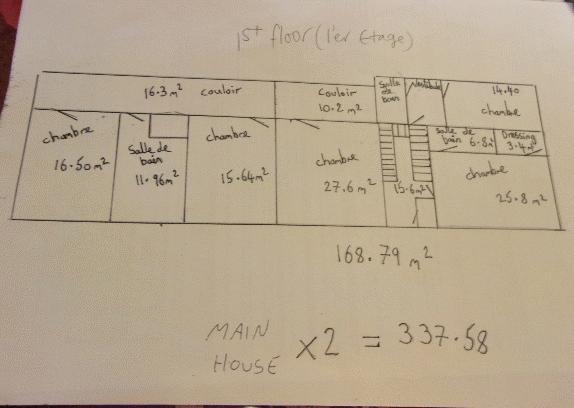 1st floor (1'er Etage)
16.3 m² couloir
Couloir
10.2 m²
Salle
de
bain
Vestibule
14.40
chambre
chambre
16.50 m²
Salle de
bain
11.96 m²
chambre
15.64 m²
chambre
27.6 m²
15.6 m²
Salle de
bain 6.8 m²
Dressing
3.4 m²
chambre
25.8 m²
168.79 m²
MAIN
HOUSE x2 = 337.58